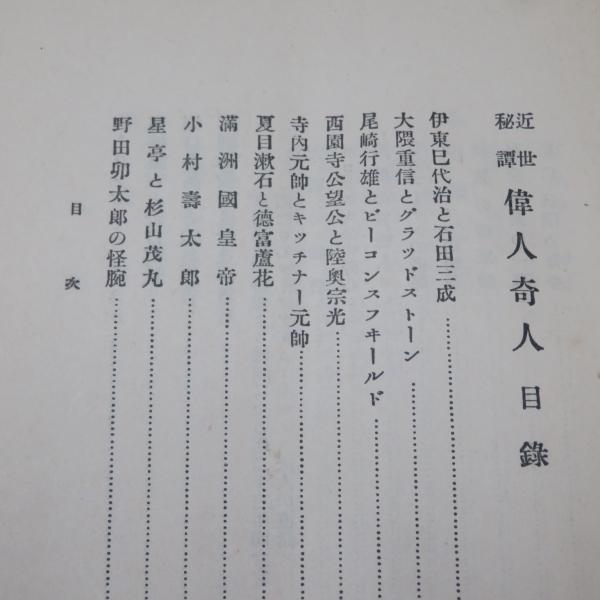 近世秘譚 偉人奇人 目錄
伊東巳代治と石田三成
大隈重信とグラツドストーン
尾崎行雄とビーコンスフヰールド
西園寺公望公と陸奧宗光
寺內元帥とキツチナー元帥
夏目漱石と德富蘆花
滿洲國皇帝
小村壽太郞
星亨と杉山茂丸
野田卯太郞の怪腕
目次